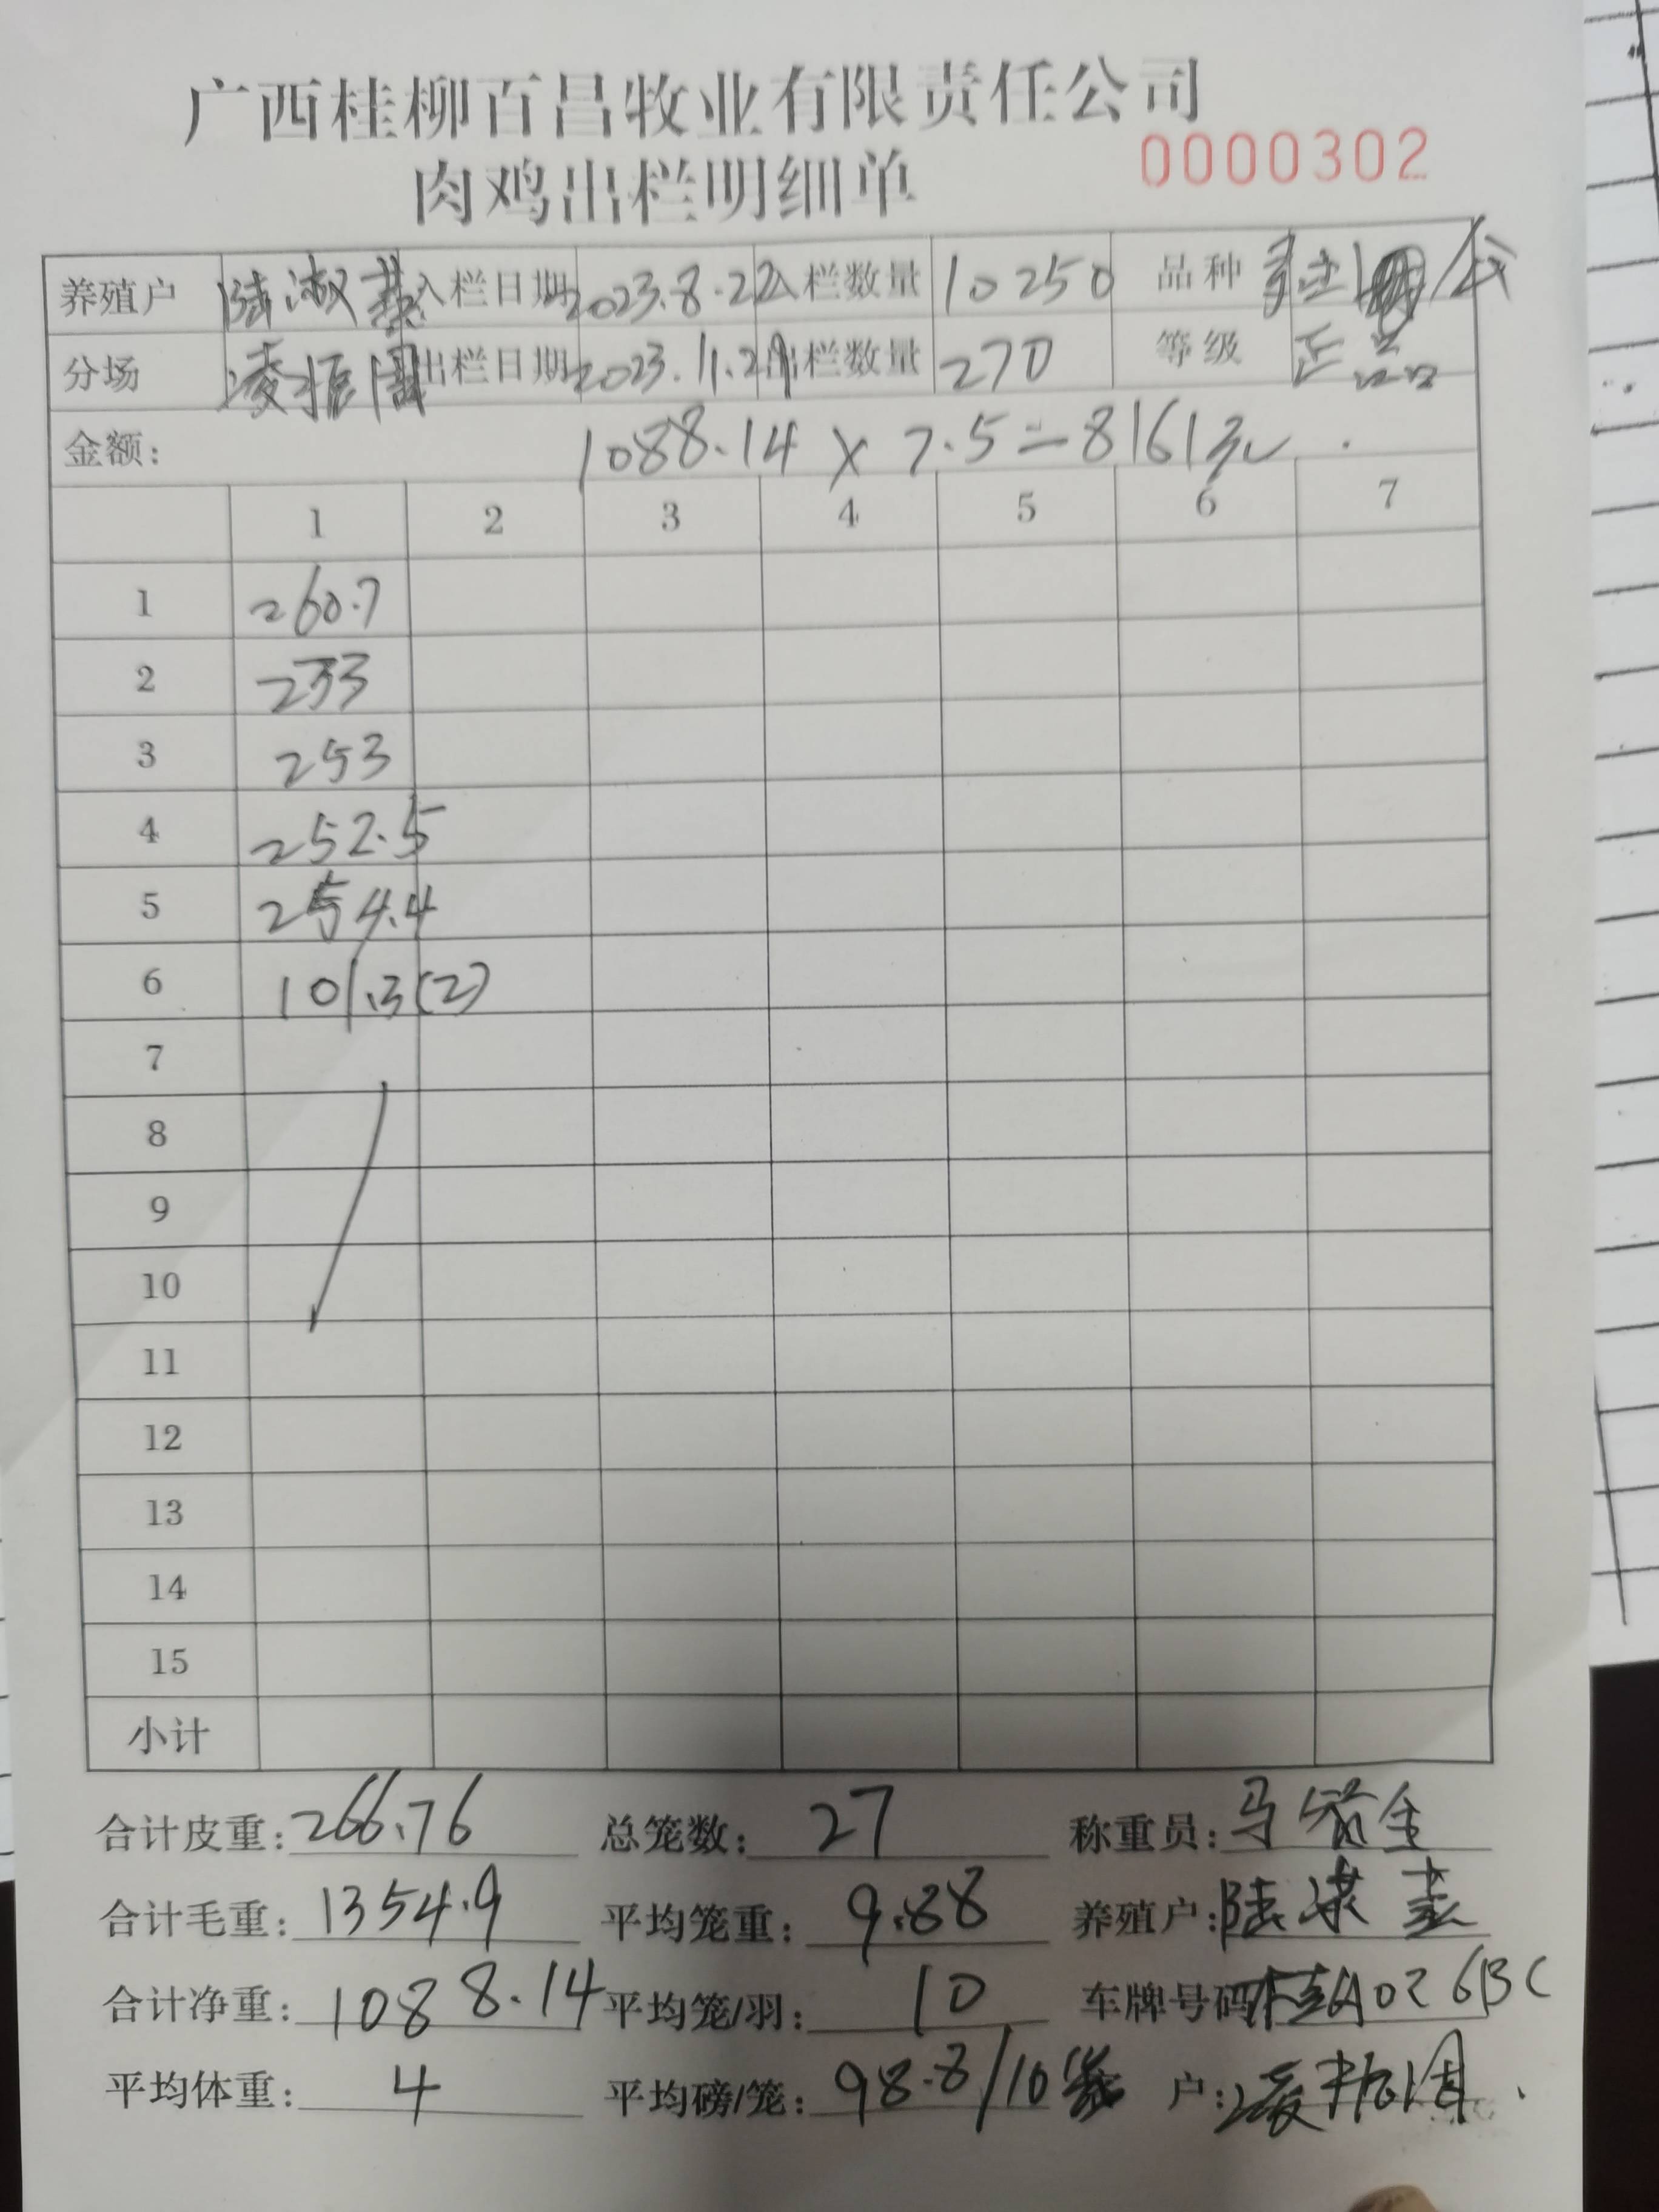 广西桂柳百昌牧业有限责任公司
肉鸡出栏明细单 0000302
养殖户 陆淑 入栏日期 2023.8.22 入栏数量 10250 品种
分场 凌振周 出栏日期 2023.11.29 出栏数量 270 等级 正品
金额: 1088.14 × 7.5=8161元
1 2 3 4 5 6 7
1 260.7
2 233
3 253
4 252.5
5 254.4
6 101.3(2)
7
8
9
10
11
12
13
14
15
小计
合计皮重: 266.76 总笼数: 27 称重员: 马
合计毛重: 1354.9 平均笼重: 9.88 养殖户: 陆
合计净重: 1088.14 平均笼/羽: 10 车牌号码 桂A026BC
平均体重: 4 平均磅/笼: 98.8/10 户: 凌振周